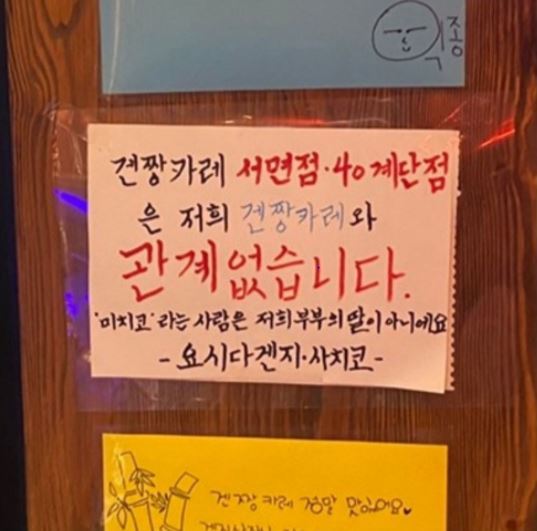 종
겐짱카레 서면점·40계단점
은 저희 겐짱카레와
관계없습니다.
'미치코'라는 사람은 저희부부의 딸이 아니에요
-요시다겐지·사치코-
겐짱카레 정말 맛있어요♥